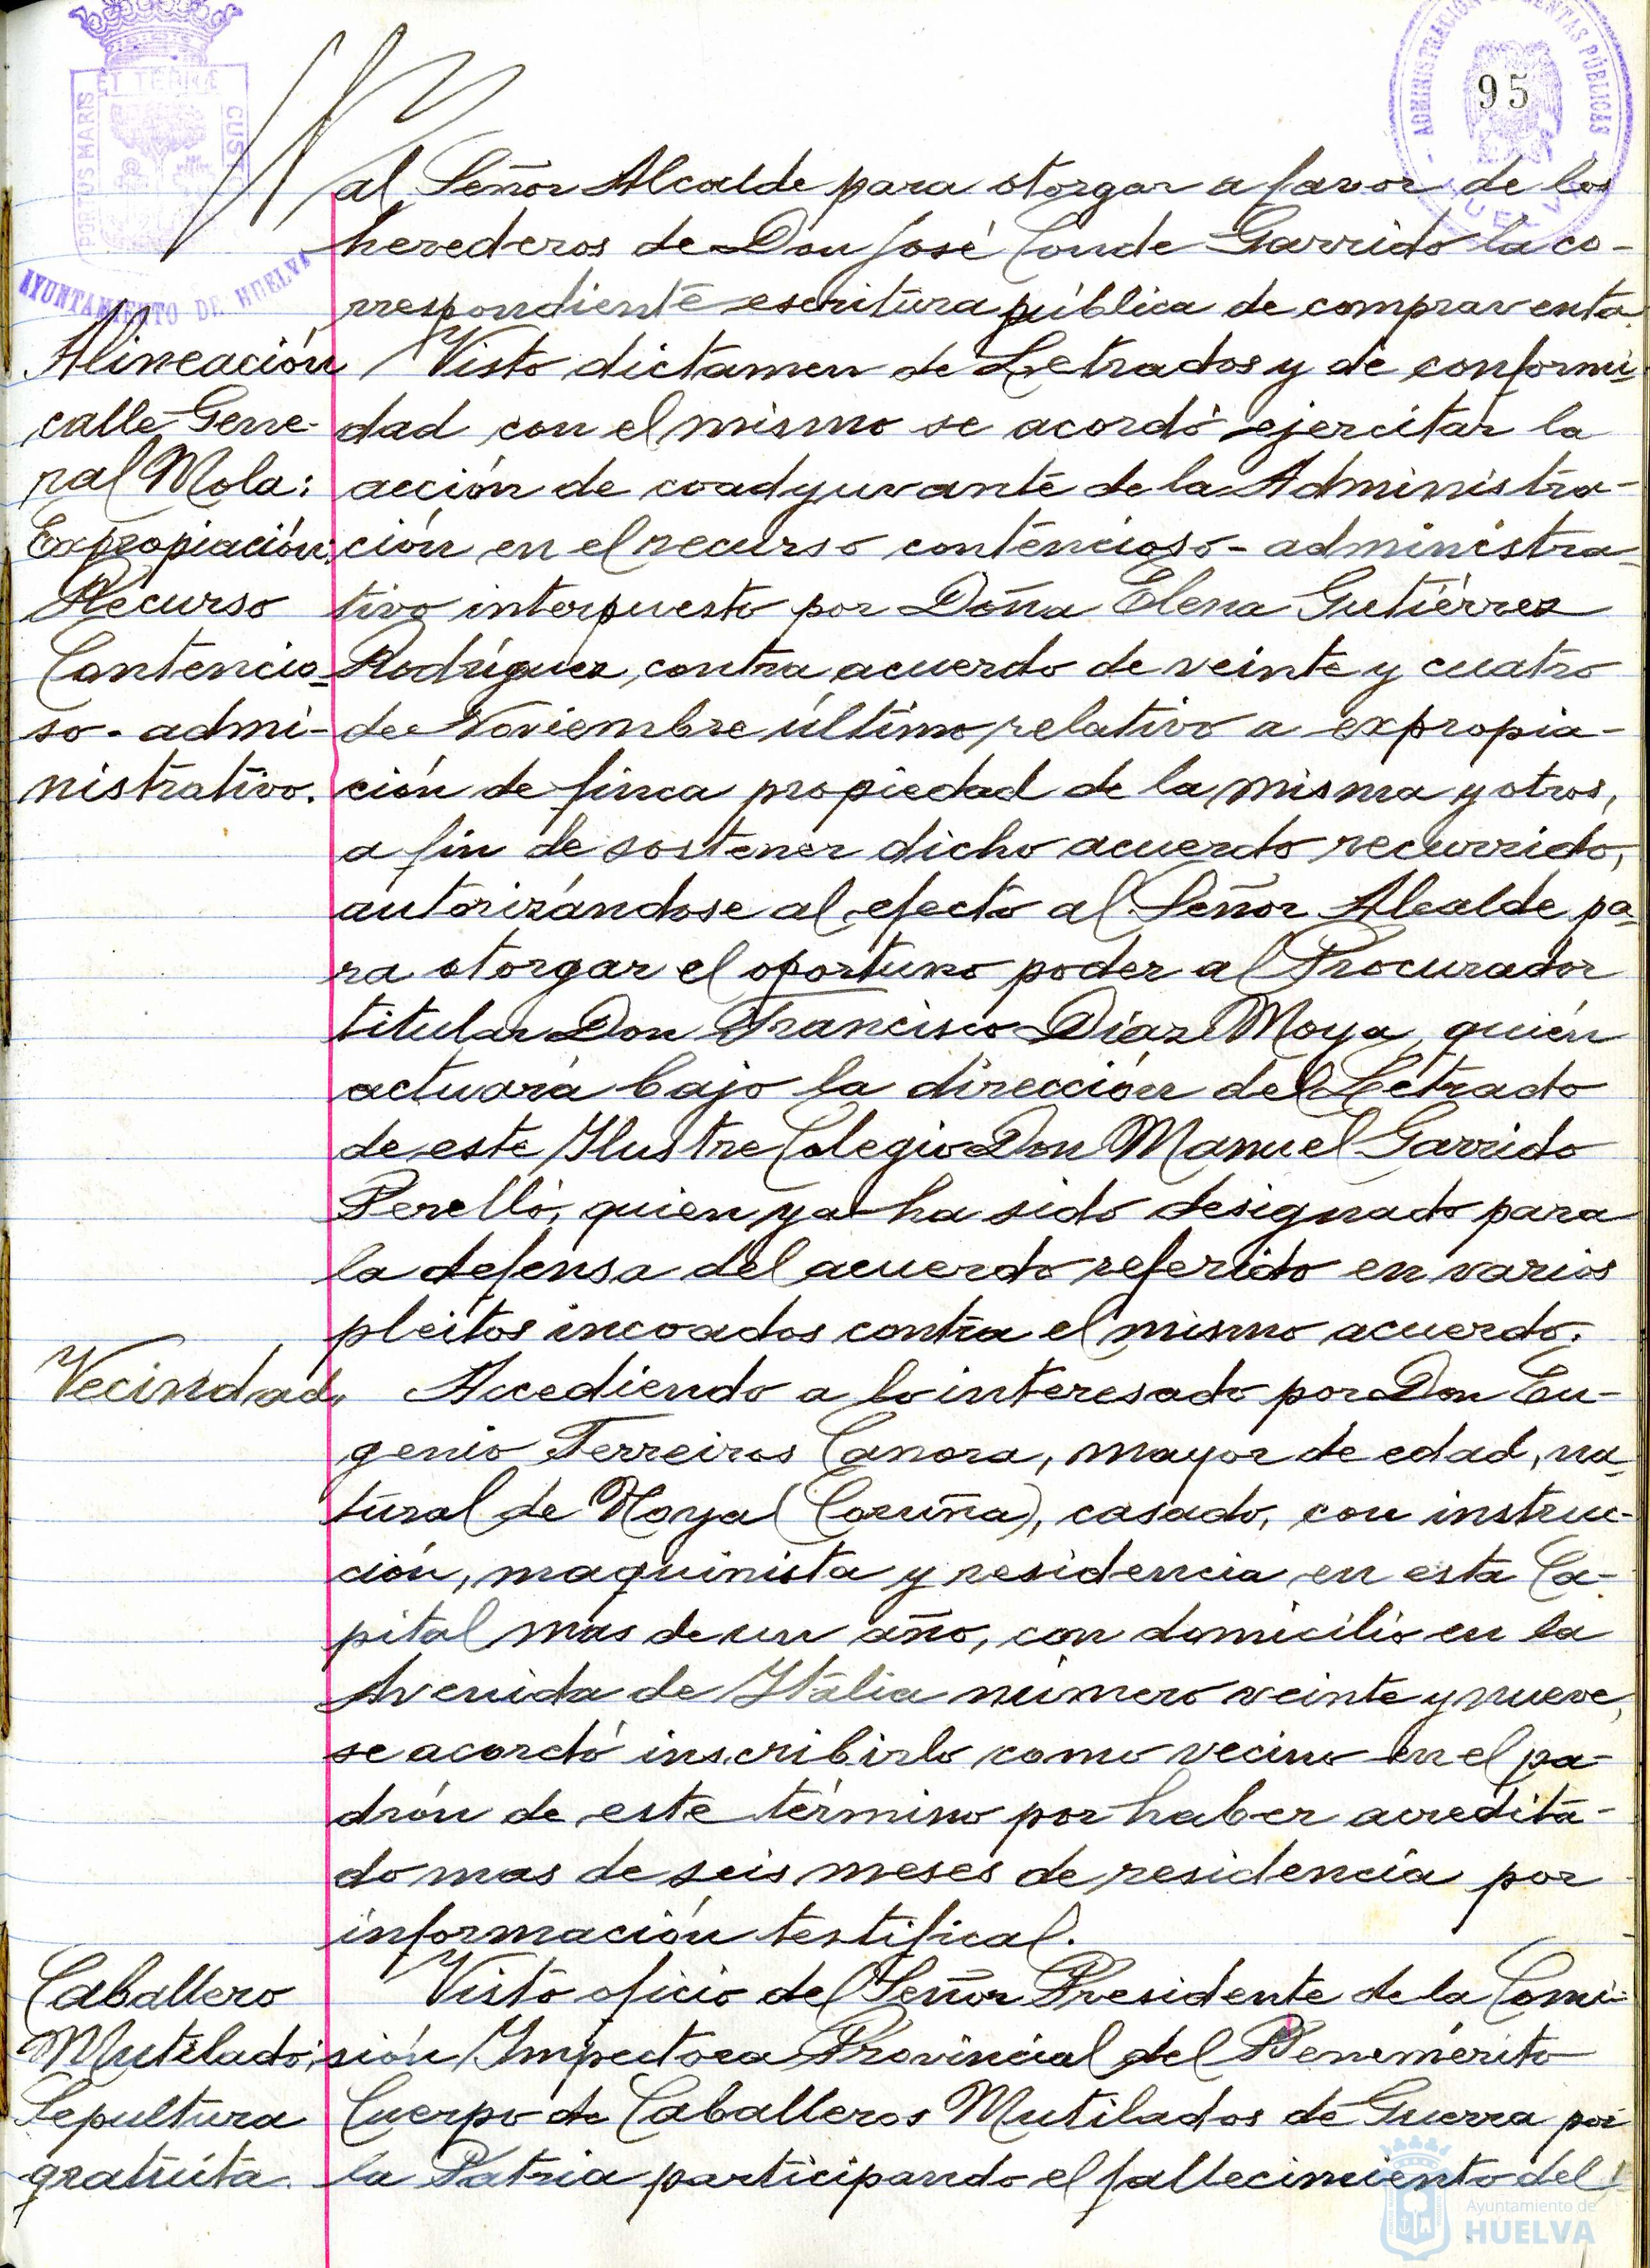 PORTUS MARIS
ET TERRÆ
CUST
AYUNTAMIENTO DE HUELVA
ADMINISTRACIÓN DE RENTAS PÚBLICAS
95
al Señor Alcalde para otorgar a favor de los
herederos de Don José Conde Garrido la co-
rrespondiente escritura pública de compraventa.
Alineación
calle Gene-
ral Mola:
Expropiación:
Recurso
Contencio-
so-admi-
nistrativo.
Visto dictamen de Letrados y de conformi-
dad con el mismo se acordó ejercitar la
acción de coadyuvante de la Administra-
ción en el recurso contencioso-administra-
tivo interpuesto por Doña Elena Gutiérrez
Rodríguez, contra acuerdo de veinte y cuatro
de Noviembre último relativo a expropia-
ción de finca propiedad de la misma y otros,
a fin de sostener dicho acuerdo recurrido,
autorizándose al efecto al Señor Alcalde pa-
ra otorgar el oportuno poder al Procurador
titular Don Francisco Díaz Moya, quién
actuará bajo la dirección del Letrado
de este Ilustre Colegio Don Manuel Garrido
Perelló, quien ya ha sido designado para
la defensa del acuerdo referido en varios
pleitos incoados contra el mismo acuerdo.
Vecindad.
Accediendo a lo interesado por Don Eu-
genio Ferreiros Canora, mayor de edad, na-
tural de Noya (Coruña), casado, con instruc-
ción, maquinista y residencia en esta Ca-
pital mas de un año, con domicilio en la
Avenida de Italia número veinte y nueve,
se acordó inscribirlo como vecino en el pa-
drón de este término por haber acredita-
do mas de seis meses de residencia por
información testifical.
Caballero
Mutilado:
Sepultura
gratuita.
Visto oficio del Señor Presidente de la Comi-
sión Inspectora Provincial del Benemérito
Cuerpo de Caballeros Mutilados de Guerra por
la Patria participando el fallecimiento del
Ayuntamiento de
HUELVA